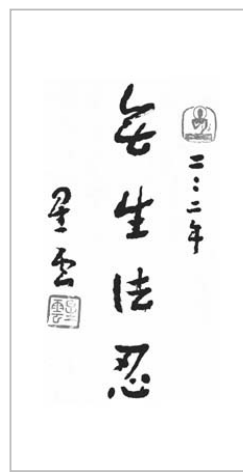 二〇〇二年
無生法忍
星云
星雲